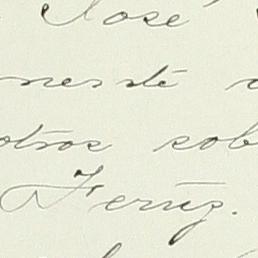 José
nesté
otros sob
Feruz.